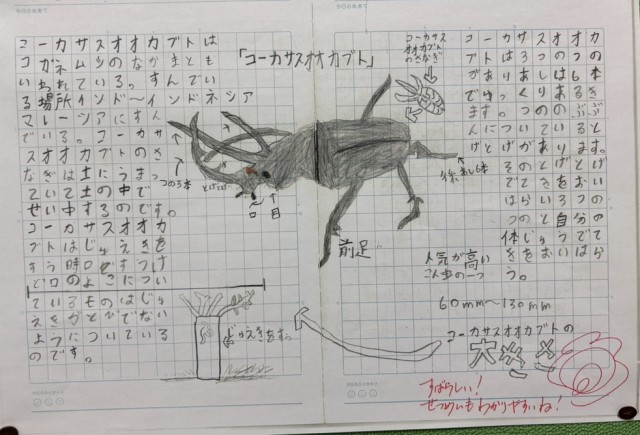 「コーカサスオオカブト」
コーカサスオオカブトは
コガネムシのなかまとも
いわれている。すんでい
る場所インド〜インドネシア
マレーシアにすん
でいる。コーカサ
スオオカブトのさ
なぎは土にうまっ
ていて土の中で
せい中するのです。
コーカサスオオカ
ブトはじゅえきを
すう時口とすつけ
て口のよこについ
ているものはじゅ
えきがとびでない
ようについている
のです。
つの3本
とげとげ
口
目
前足
後あし6本
コーカサス
オオカブトの
さなぎ
コーカサスオオカ
ブトは3つのつの
がありあしは6本
でゆっくりあるき
ます。つののぶぶ
んについていると
げとげがあります。
そのとげとげ
でてきをおい
はらい3つの
つのと自分の
体じゅうでて
きをおいはら
う。
人気が高い
こん虫の一つ
60mm〜130mm
コーカサスオオカブトの
大きさ
じゅえきをすう。
すばらしい!
せつめいもわかりやすいね!